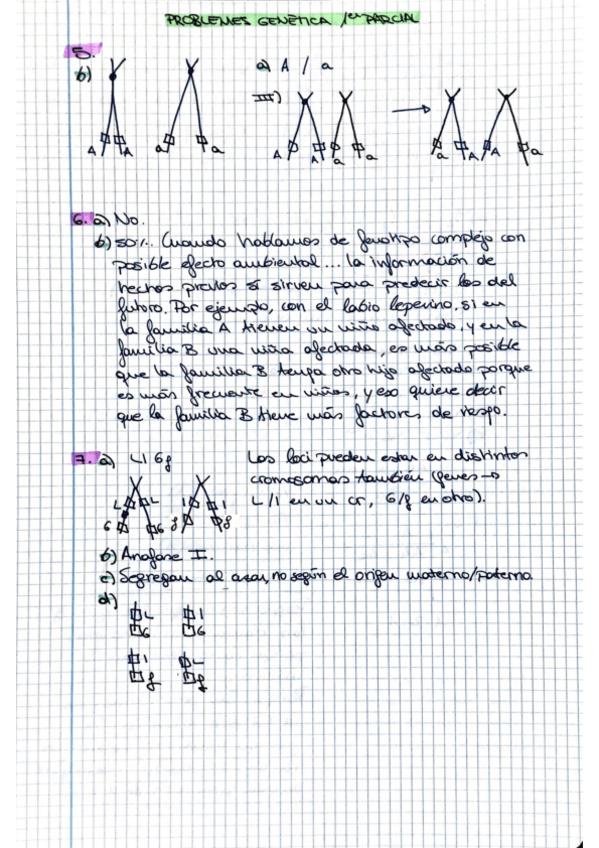 PROBLEMES GENÈTICA / 1er PARCIAL
5.
b)
a) A / a
III)
A A a a
A A a a
a A A a
6. a) No.
b) 50%. Cuando hablamos de fenotipo complejo con
posible efecto ambiental... la información de
hechos previos sí sirven para predecir los del
futuro. Por ejemplo, con el labio leporino, si en
la familia A tienen un niño afectado, y en la
familia B una niña afectada, es más posible
que la familia B tenga otro hijo afectado porque
es más frecuente en niños, y eso quiere decir
que la familia B tiene más factores de riesgo.
7. a) Ll Gg
Los loci pueden estar en distintos
cromosomas también (genes →
L/l en un cr, G/g en otro).
L L l l
G G g g
b) Anafase I.
c) Segregan al azar, no según el origen materno/paterno.
d)
L l
G G
l L
g g